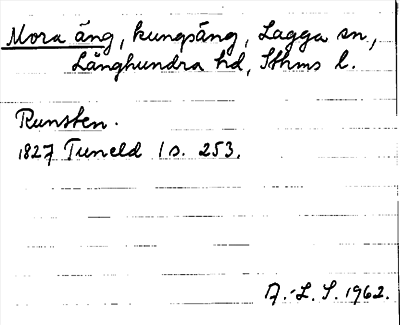 Mora äng, kungsäng, Lagga sn,
Långhundra hd, Sthms l.
Runsten.
1827 Tuneld I s. 253.
A.-L. S. 1962.